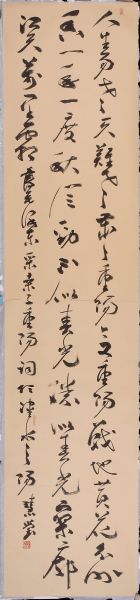 人生易老天难老岁岁重阳今又重阳战地黄花分外
香一年一度秋风劲不似春光胜似春光寥廓
江天万里霜 毛泽东采桑子重阳词